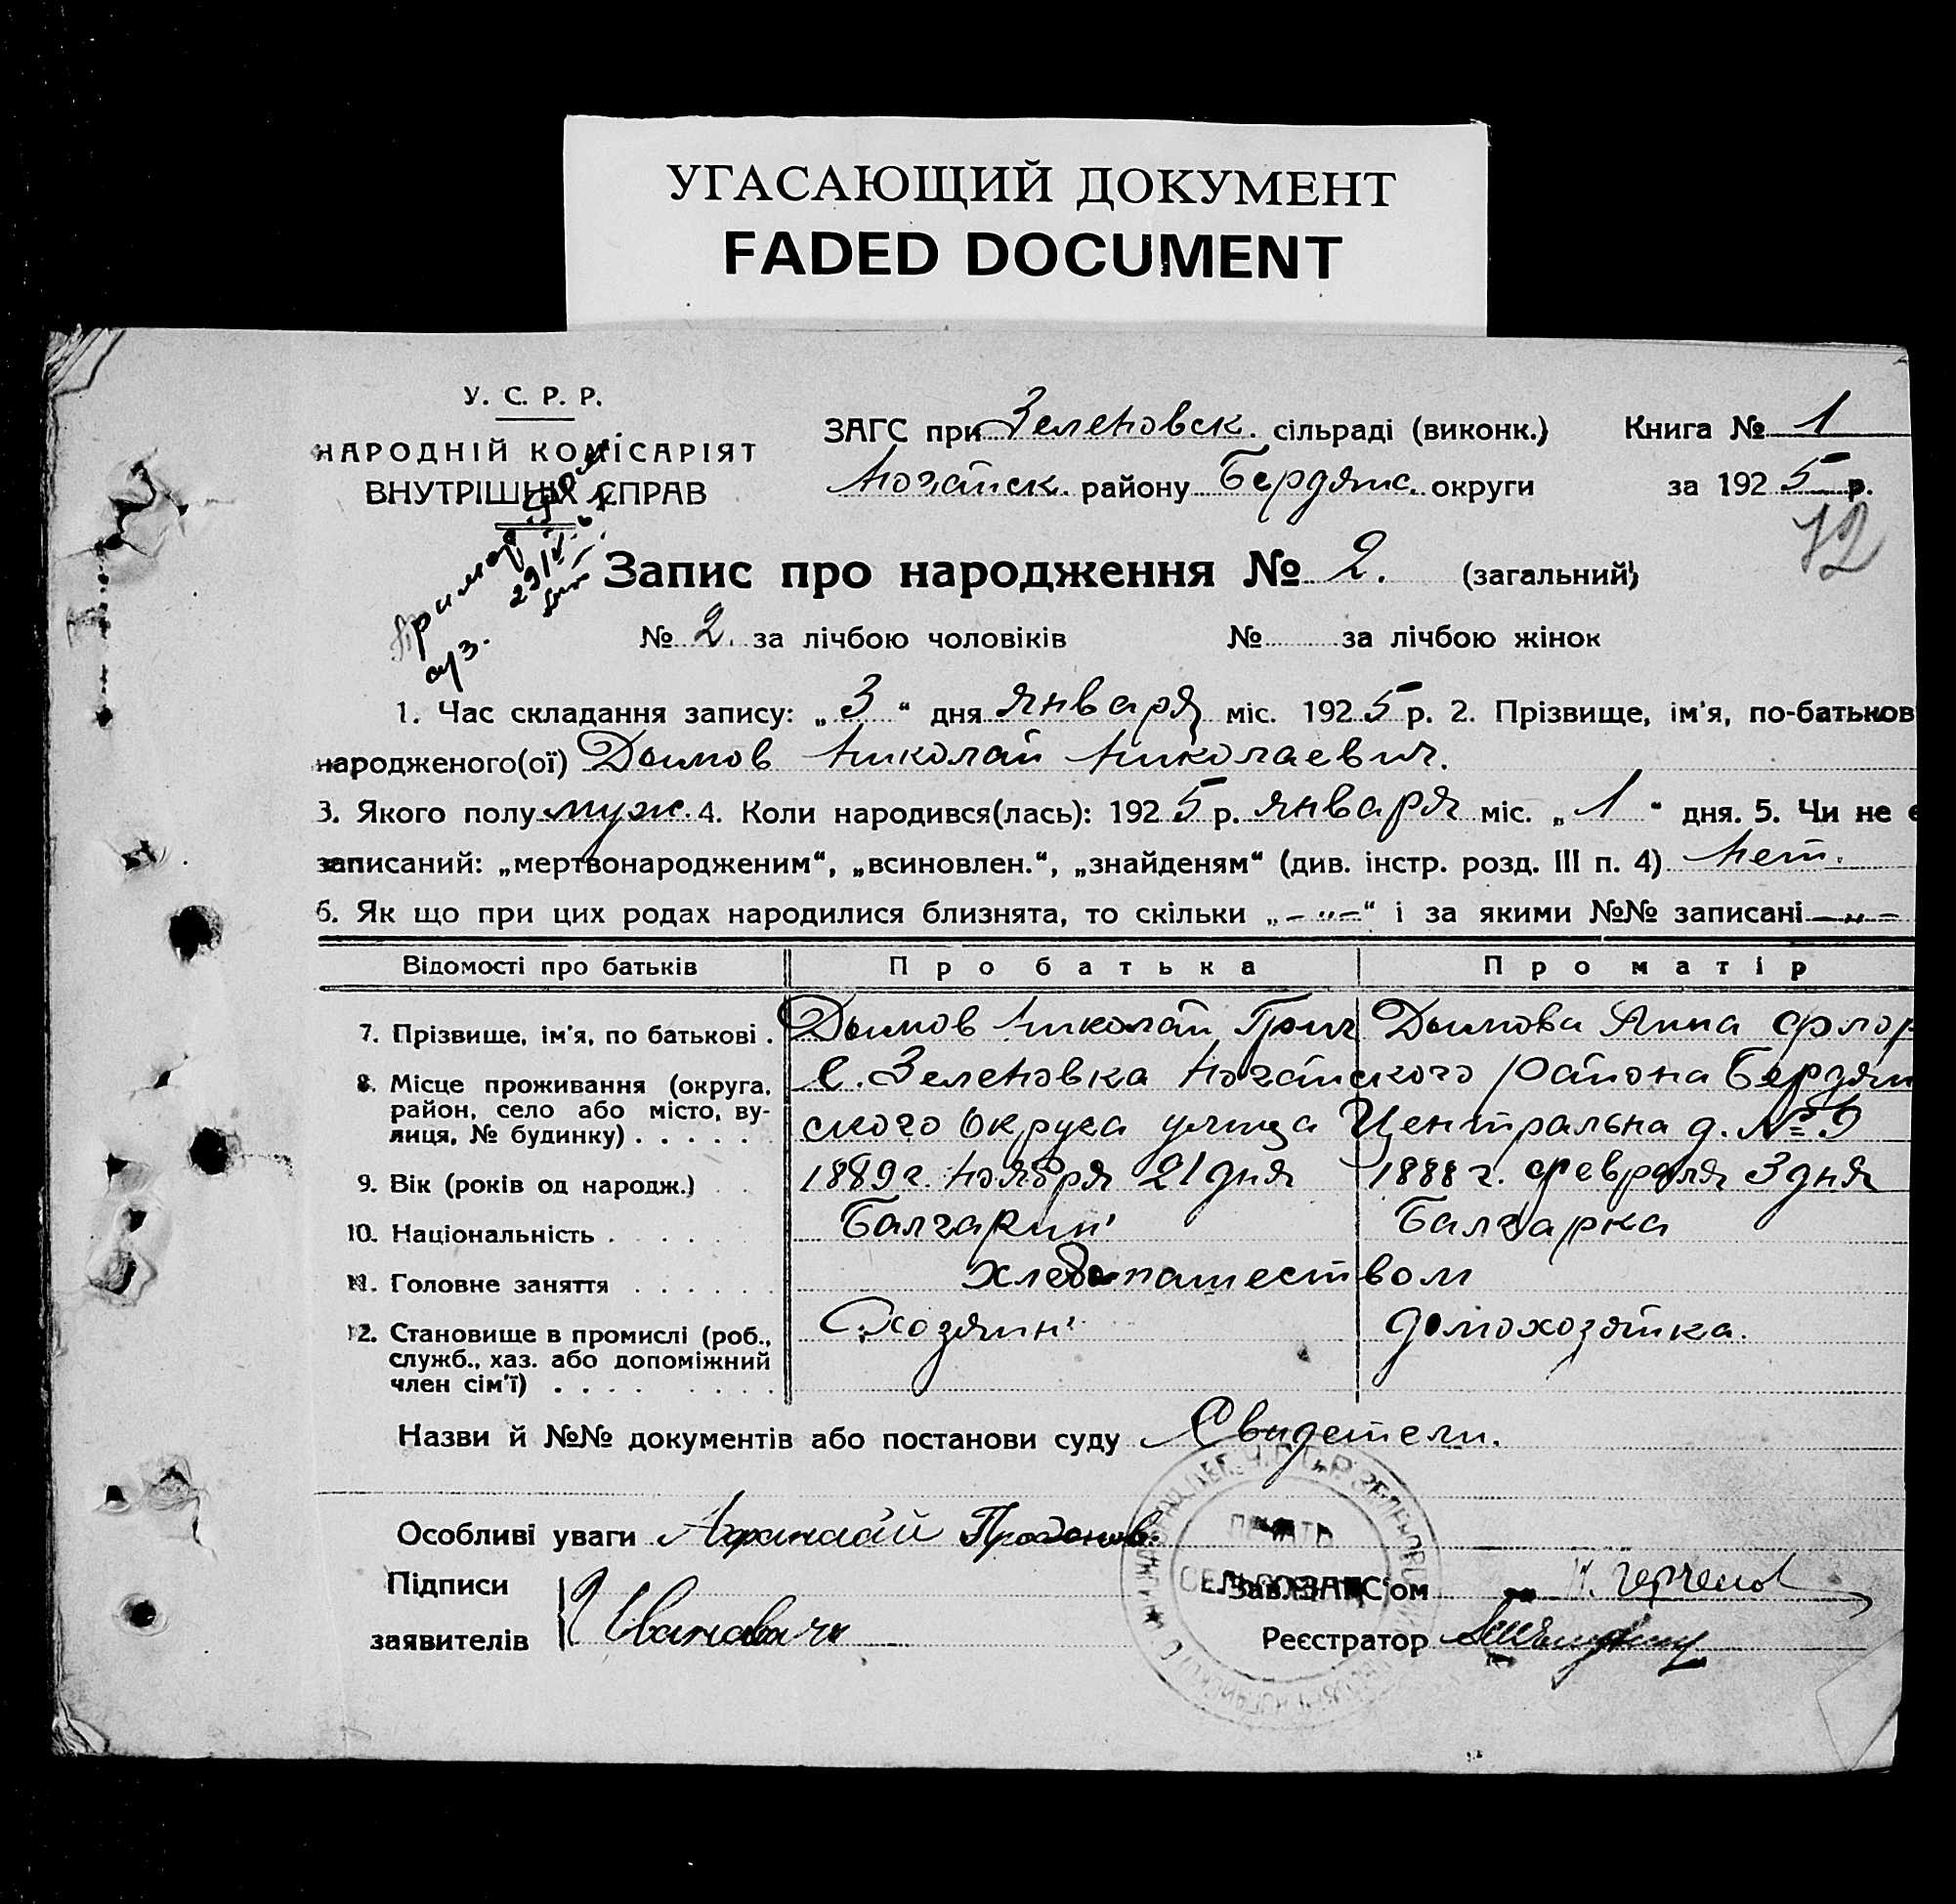 УГАСАЮЩИЙ ДОКУМЕНТ
FADED DOCUMENT
У. С. Р. Р.
НАРОДНІЙ КОМІСАРІЯТ
ВНУТРІШНІХ СПРАВ
ЗАГС при Зеленовск. сільраді (виконк.)
Ногайск. району Бердянс. округи
Книга № 1
за 1925 р.
72
Запис про народження № 2. (загальний)
№ 2. за лічбою чоловіків № за лічбою жінок
1. Час складання запису: „3“ дня января міс. 1925 р. 2. Прізвище, ім'я, по-батьков
народженого(ої) Дымов Николай Николаевич.
3. Якого полу муж. 4. Коли народився(лась): 1925 р. января міс. „1“ дня. 5. Чи не є
записаний: „мертвонародженим“, „всиновлен.“, „знайденям“ (див. інстр. розд. III п. 4) Нет.
6. Як що при цих родах народилися близнята, то скільки „–"–“ і за якими №№ записані –"–
Відомості про батьків Про батька Про матір
7. Прізвище, ім'я, по батькові . Дымов Николай Григ Дымова Анна Флор
8. Місце проживання (округа, район, село або місто, вулиця, № будинку) . . . . . С. Зеленовка Ногайского района Бердян
ского Округа улица Центральна д. № 9
9. Вік (років од народж.) . . 1889 г. Ноября 21 дня 1888 г. февраля 3 дня
10. Національність . . . . . . Балгарин Балгарка
11. Головне заняття . . . . . . хлебопашеством
12. Становище в промислі (роб., служб., хаз. або допоміжний член сім'ї) . . . . . . . . Хозяин домохозяйка.
Назви й №№ документів або постанови суду Свидетели.
Особливі уваги Афанасий Проданов.
Підписи
заявителів Иванова
Зав. ЗАГС'ом
Реєстратор
ПЕЧАТЬ